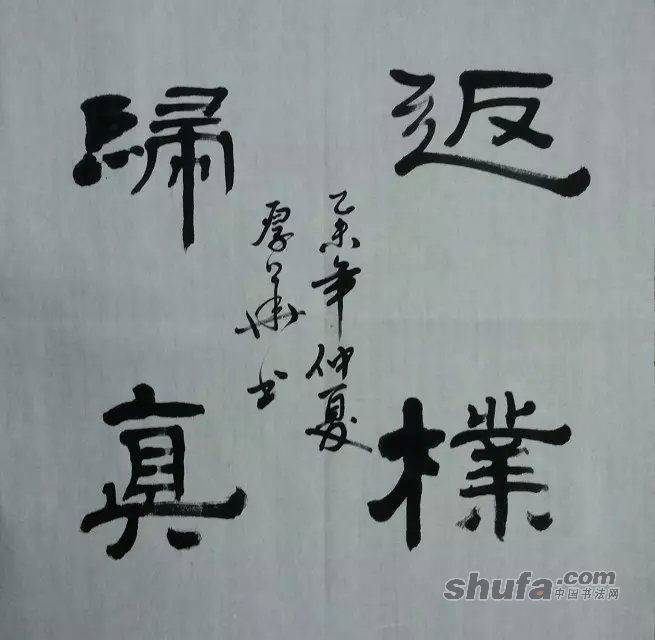 返樸
歸真
乙未年仲夏
厚華书
shufa.com
中国书法网